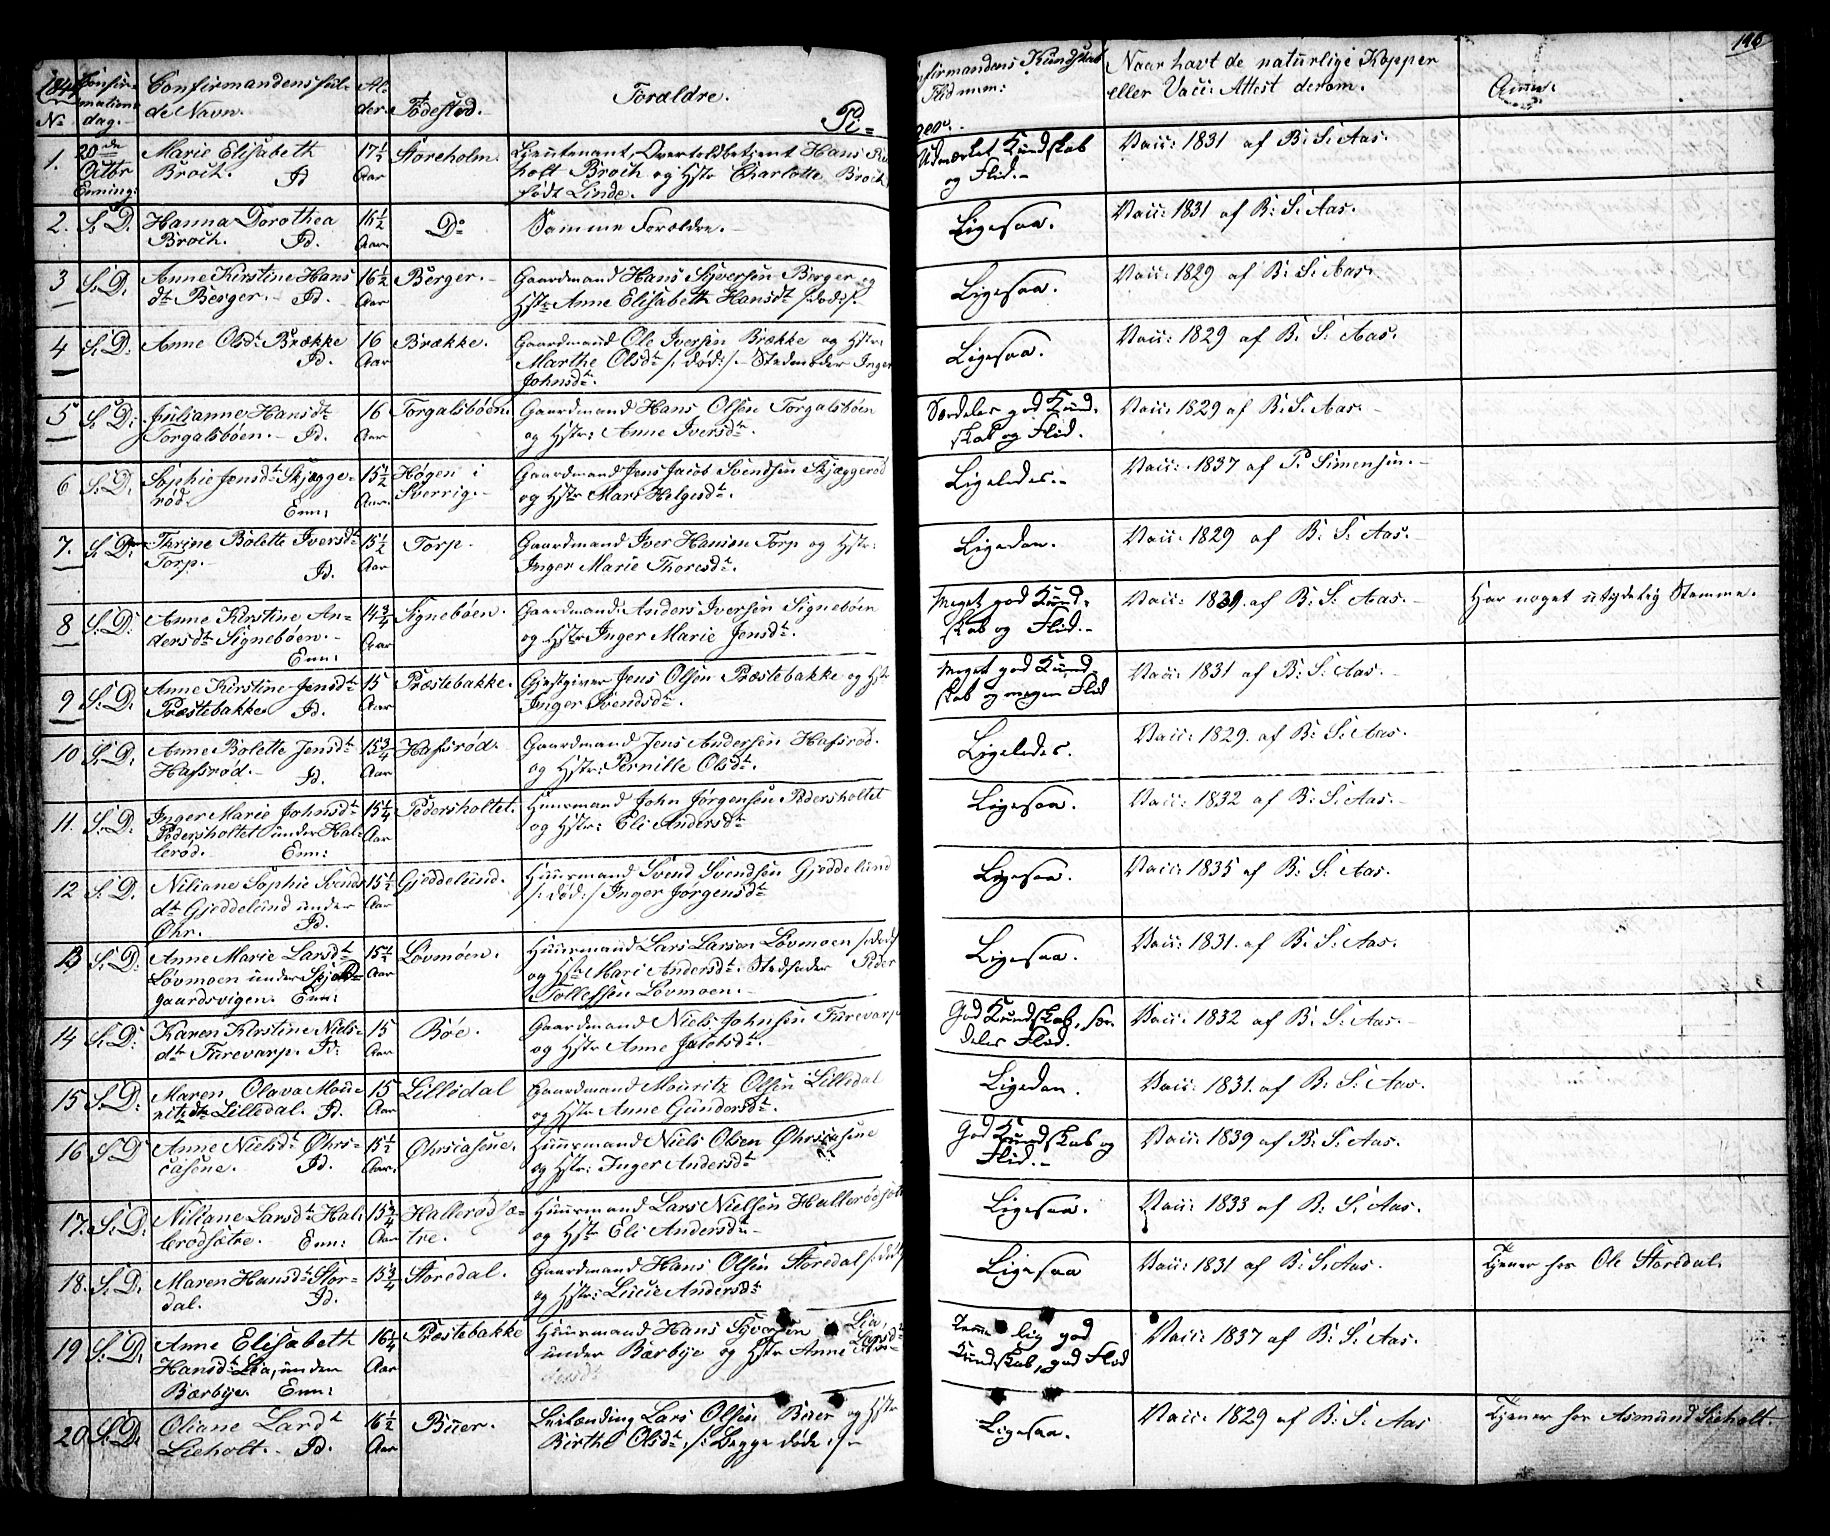 146
Confirmandens fulde Navn. Alder. Fødested. Forældre. Pi=
Confirmandens Kundskab Naar havt de naturlige Kopper
Flid mm: eller Vacc: Attest derom. Anm:
ger.
No Confirmations dag.
1. 20de Octbr Enning: Marie Elisabeth Broch. Id 17 1/2 Aar Storeholm. Lieutenant, Overtoldbetjent Hans
holt Broch og Hstr Charlotte Broch
født Linde.
Udmærket Kundskab og Flid.- Vacc: 1831 af B: S: Aas.
2. S: D: Hanna Dorothea Broch. Id. 16 1/2 Aar Do Samme Forældre.-
Ligesaa. Vacc: 1831 af B: S: Aas.
3 S: D: Anne Kirstine Hans dt Berger.- Id. 16 1/2 Aar Berger.- Gaardmand Hans Syversen Berger og
Hstr Anne Elisabeth Hansdt /:død:/.
Ligesaa. Vacc: 1829 af B: S: Aas.
4 S: D: Anne Olsdt Brække Id. 16 Aar Brække. Gaardmand Ole Iversen Brække og Hstr:
Marthe Olsdt /: død:/- Stedmoder Inger
Johnsdt.
Ligesaa. Vacc: 1829 af B: S: Aas.
5 S: D: Julianne Hansdt Torgalsbøen.- Id. 16 Aar Torgalsbøen. Gaardmand Hans Olsen Torgalsbøen
og Hstr: Anne Iversdt.
Særdeles god Kund-
skab og Flid. Vacc: 1829 af B: S: Aas.-
6 S: D. Sophie Jensdt Skjægge-
rød. Enn: 15 1/2 Aar. Høgen i
Sverrig.- Gaardmand Jens Jacob Svendsen Skjæggerød
og Hstr Mari Helgesdt.
Ligeledes.- Vacc: 1837 af P. Simensen.-
7. S: D: Thrine Bolette Iversdt
Torp.- Id. 15 1/2 Aar Torp. Gaardmand Iver Hansen Torp og Hstr:
Inger Marie Thoresdt.
Ligedan. Vacc: 1829 af B: S: Aas.-
8 S: D: Anne Kirstine An-
dersdt Signebøen.- Enn: 14 3/4 Aar Signebøen. Gaardmand: Anders Iversen Signebøen
og Hstr Inger Marie Jensdt.
Meget god Kund-
skab og Flid.- Vacc: 1839. af B: S: Aas.- Har noget utydelig Stemme.
9 S: D: Anne Kirstine Jensdt
Præstebakke Id. 15 Aar Præstebakke. Gjestgiver Jens Olsen Præstebakke og Hstr
Inger Svendsdt.
Meget god Kund-
skab og megen Flid Vacc: 1831 af B: S: Aas.
10 S: D: Anne Bolette Jensdt
Hafsrød.- Id. 15 3/4 Aar Hafsrød. Gaardmand Jens Andersen Hafsrød.
og Hstr: Pernille Olsdt.
Ligeledes. Vacc: 1829. af B: S: Aas.
11. S: D: Inger Marie Johnsdt
Pedersholtet under Hal-
lerød.- Enn: 15 1/4 Aar Pedersholtet. Huusmand John Jørgensen Pedersholtet
og Hstr: Eli Andersdt
Ligesaa. Vacc: 1832 af B: S: Aas.-
12 S: D. Niliane Sophie Svends
dt Gjeddelund under
Øhr. Id. 15 1/2 Aar Gjeddelund. Huusmand Svend Svendsen Gjeddelund
/: død:/ Inger Jørgensdt
Ligesaa. Vacc: 1835 af B: S: Aas.
13 S: D: Anne Marie Larsdt
Løvmoen under Skjold-
gaardsvigen. Enn: 15 1/2 Aar Løvmoen. Huusmand Lars Larsen Løvmoen /:død:/
og Hstr Mari Andersdt. Stedfader Peder
Tollefsen Løvmoen.-
Ligesaa. Vacc: 1831. af B: S: Aas.
14 S: D: Karen Kirstine Niels-
dt Furevarp. Id. 15 Aar Bøe. Gaardmand Niels Johnsen Furevarp
og Hstr Anne Jacobsdt.
God Kundskab, sær-
deles Flid. Vacc: 1832 af B: S: Aas.
15 S: D: Maren Olava Mou-
ritzdt Lilledal. Id. 15 Aar Lilledal Gaardmand Mouritz Olsen Lilledal
og Hstr Anne Gundersdt.
Ligedan. Vacc: 1831. af B: S: Aas.
16 S D Anne Nielsdt Øhrs-
casene. Id. 15 1/2 Aar. Øhrscasene. Huusmand Niels Olsen Øhrscasene
og Hstr: Inger Andersdt
God Kundskab og
Flid.- Vacc: 1839 af B: S: Aas.
17. S: D: Niliane Larsdt Hal-
lerødsætre. Enn: 15 3/4 Aar Hallerødsæ-
tre. Huusmand Lars Nielsen Hallerødsætre
og Hstr Eli Andersdt.-
Ligesaa. Vacc: 1833 af B: S. Aas.
18. S: D: Maren Hansdt Stor-
dal. Id. 15 3/4 Storedal. Gaardmand Hans Olsen Storedal /:død:/
og Hstr: Lucie Andersdt
Ligesaa Vacc: 1831 af B: S: Aas. Tjener hos Ole Storedal.
19 S: D: Anne Elisabeth
Hansdt Lia, under
Bærbye Enn: 16 1/4 Aar Præstebakke Huusmand Hans Syversen Lia,
under Bærbye og Hstr Anne Larsdt
Temmelig god
Kundskab, god Flid Vacc: 1837 af B: S: Aas.
20 S: D: Oliane Larsdt
Lieholt. Id. 16 1/2 Aar Buer. Leilænding Lars Olsen Buer og Hstr
Birthe Olsdt. /: begge døde:/-
Ligesaa. Vacc: 1829 af B: S: Aas Tjener hos Asmund Lieholt.